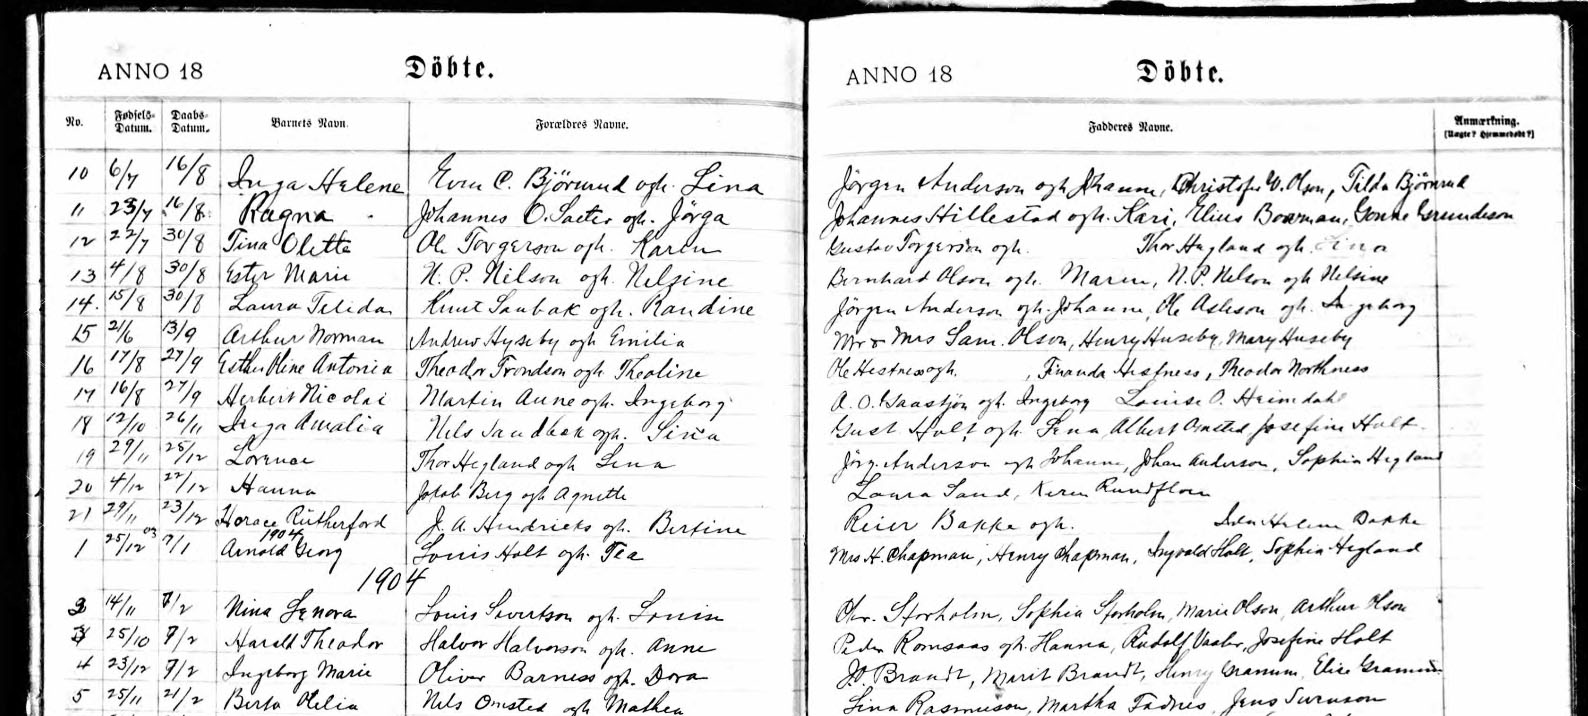 ANNO 18 Döbte. ANNO 18 Döbte.
No. Fødsels-Datum. Daabs-Datum. Barnets Navn. Forældres Navne. Fadderes Navne. Anmærkning.
(Uægte? Hjemmedøbt?)
10 6/7 16/8 Inga Helene Even C. Björnrud ogh. Lina Jörgen Anderson ogh Johanne, Christofer W. Olson, Tilda Björnrud
11 23/7 16/8 Ragna Johannes O. Saeter ogh. Jörga Johannes Hillestad ogh. Kari, Elius Bowman, Gonne Grundeson
12 22/7 30/8 Tina Olette Ole Torgerson ogh. Karen Gustav Torgerson ogh. Thor Hegland ogh. Lina
13 4/8 30/8 Ester Marie N. P. Nilson ogh Nelsine Bernhard Olson ogh. Maren, N. P. Nelson ogh Nelsine
14. 15/8 30/8 Laura Telida Knut Saubak ogh. Randine Jörgen Anderson ogh. Johanne, Ole Asleson ogh. Ingeborg
15 21/6 13/9 Arthur Norman Andrew Hyseby ogh Emilia Mr & Mrs Sam. Olson, Henry Huseby, Mary Huseby
16 17/8 27/9 Esther Oline Antonia Theodor Trondson ogh Theoline Ole Hestness ogh. , Finanda Hestness, Theodor Northness
17 16/8 27/9 Herbert Nicolai Martin Aune ogh. Ingeborg A. O. ogh. Ingeborg Louise O. Heimdahl
18 12/10 26/11 Inga Amalia Nils Sandbak ogh. Sina Gust Holt ogh Lena, Albert Omsted Josefine Holt
19 29/11 25/12 Lorence Thor Hegland ogh Lena Jörg. Anderson ogh Johanne, Johan Anderson, Sophia Hegland
20 4/12 22/12 Hanna Jakob Berg ogh Agnette Laura Sand, Karen Rundfloen
21 29/11 23/12 Horace Rutherford J. A. Hendricks ogh. Bertine Reier Bakke ogh. Helene Bakke
1 25/12 03 7/1 1904 Arnold Georg Louis Holt ogh. Tea Mrs H. Chapman, Henry Chapman, Ingvald Holt, Sophia Hegland
1904
2 14/11 7/2 Nina Lenora Louis Sivertson ogh. Louise Chr. Storholm, Sophia Storholm, Marie Olson, Arthur Olson
3 25/10 7/2 Harald Theodor Halvor Halvorson ogh. Anne Peder Romsaas ogh. Hanna, Rudolf Vaaler, Josefine Holt
4 23/12 7/2 Ingeborg Marie Oliver Barness ogh. Dora Brandt, Marit Brandt, Henry Gramum, Elise Gramum
5 25/11 21/2 Berta Helia Nils Omsted ogh Mathea Lina Rasmuson, Martha Fadnes, Jens Swenson